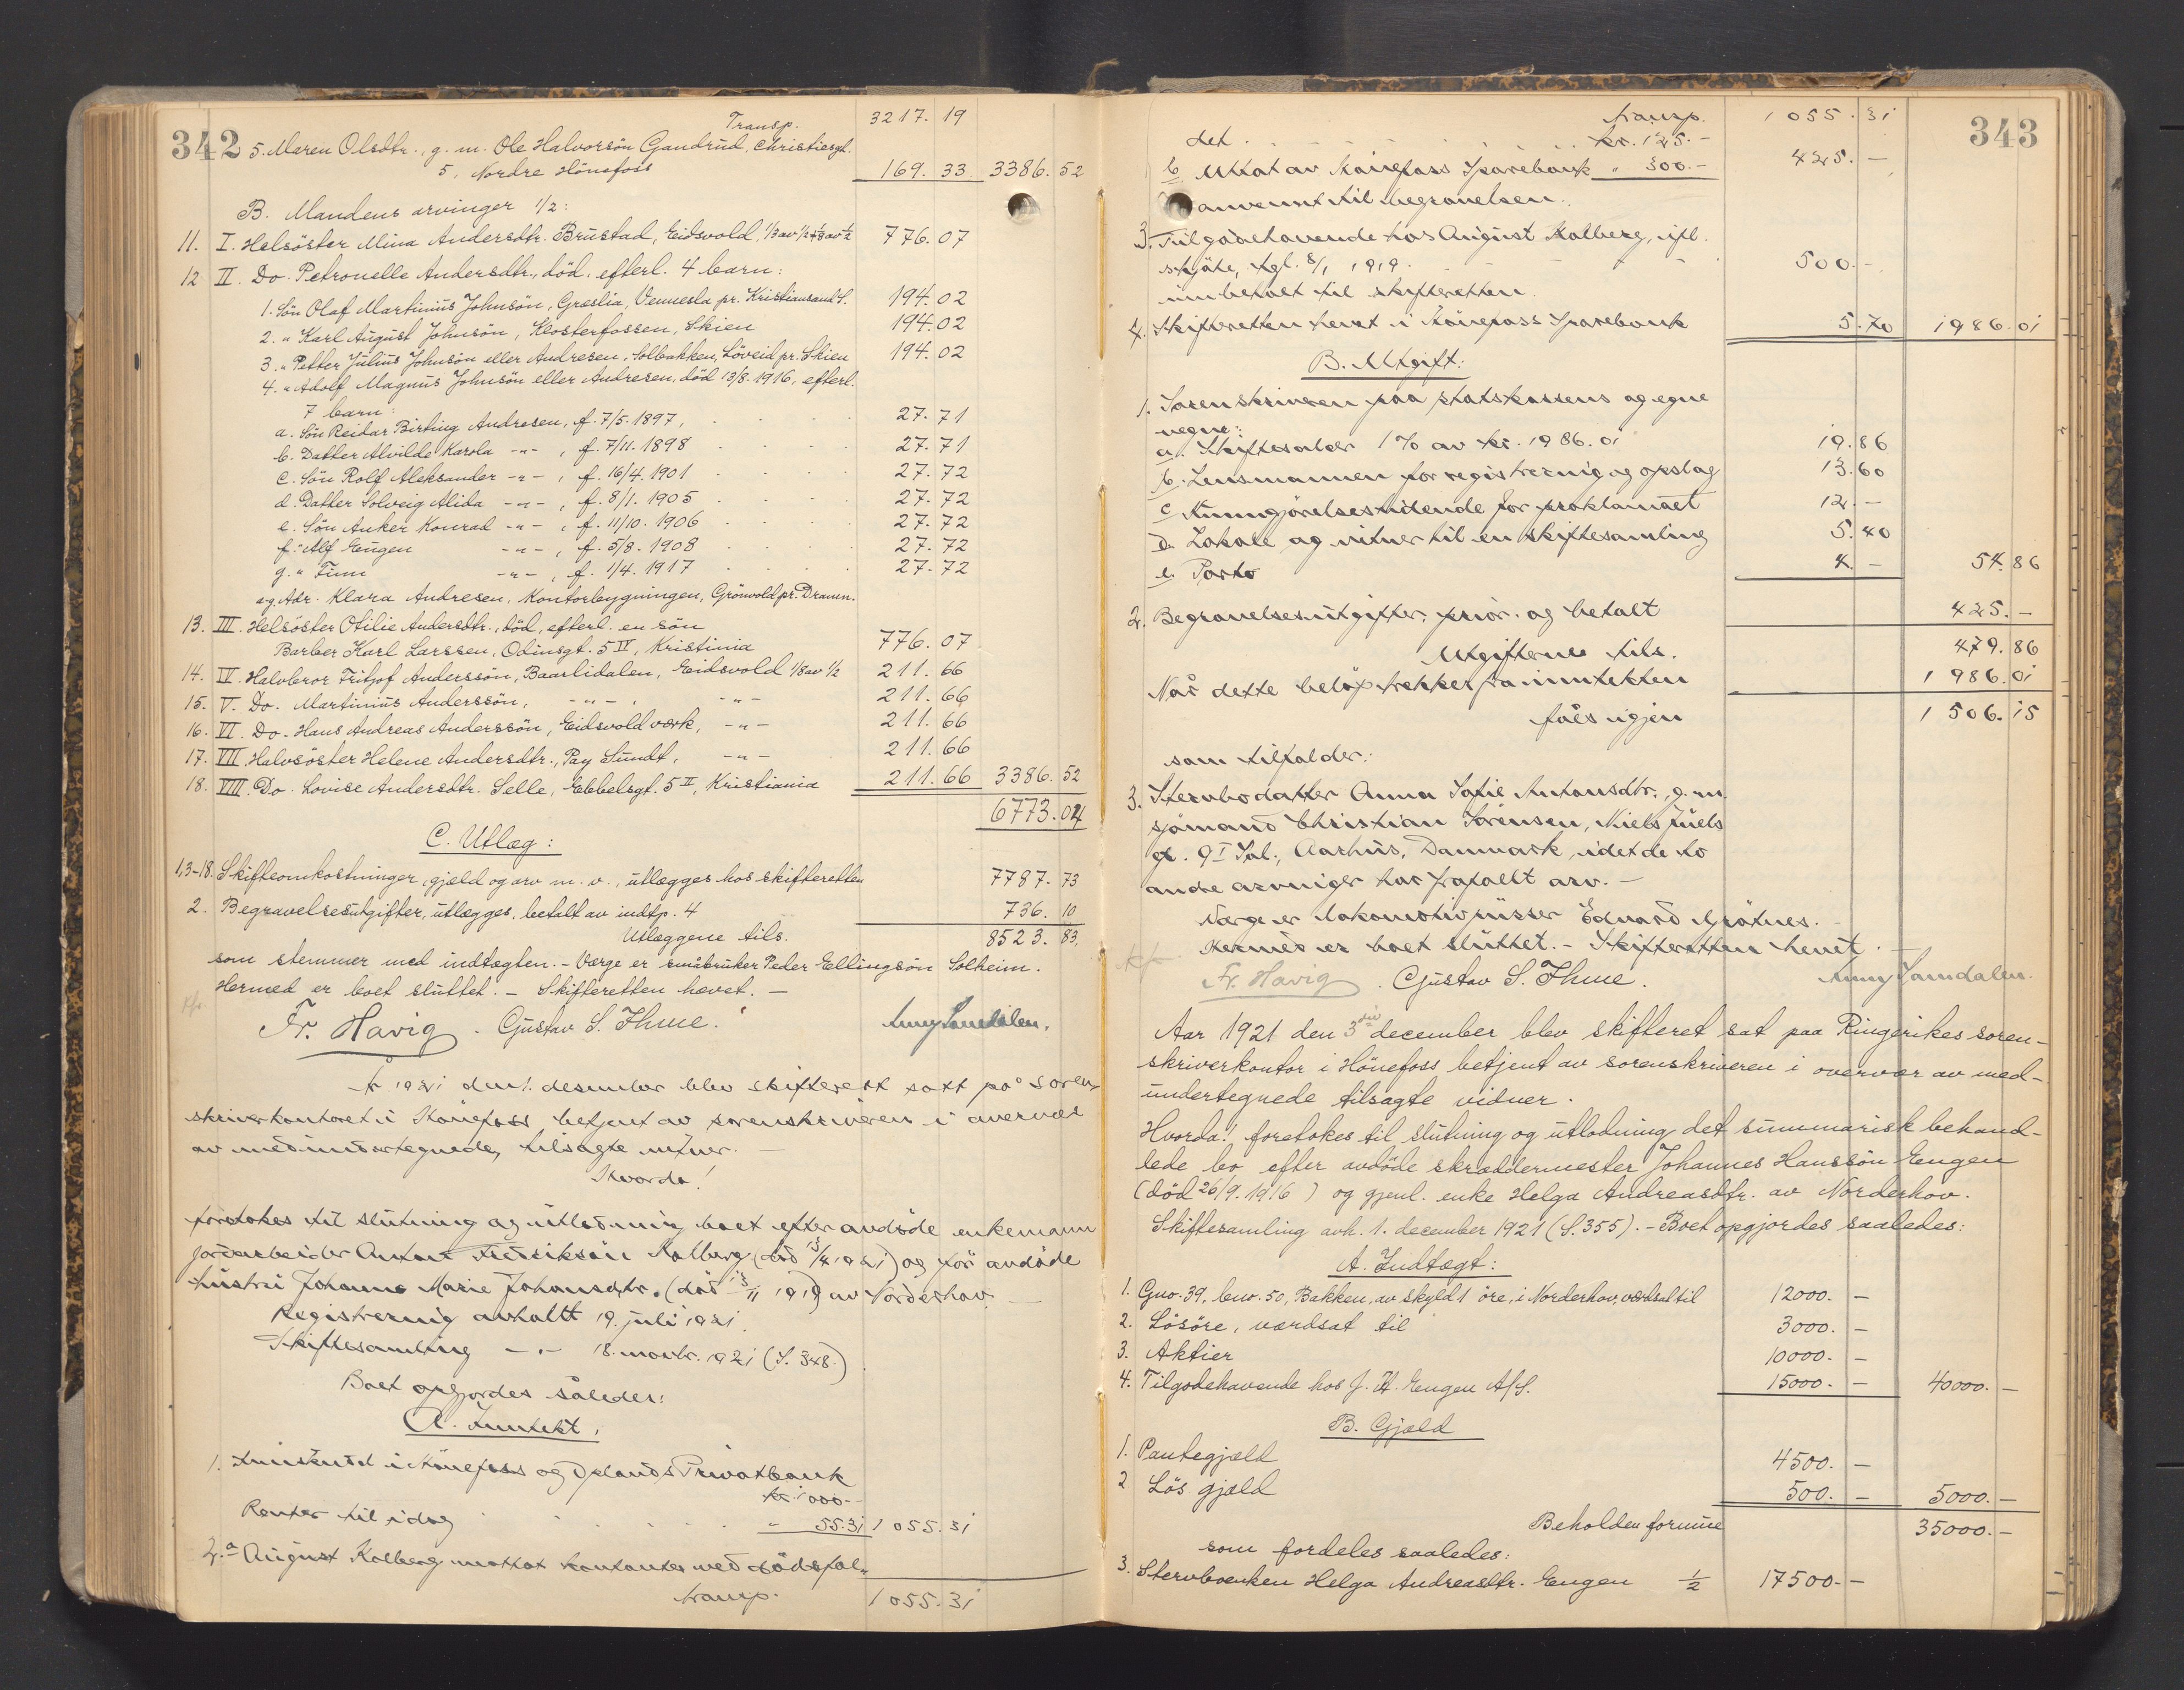 342
Transp. 3217. 19
5. Maren Olsdtr., g. m. Ole Halvorsön Gandrud, Christiesgt.
5, Nordre Hönefoss 169. 33 3386. 52
B. Mandens arvinger 1/2:
11. I. Helsöster Mina Andersdtr. Brustad, Eidsvold, 1/3 av 1/2 + 1/8 av 1/2 776. 07
12 II. Do. Petronelle Andersdtr., död, efterl. 4 barn:
1. Sön Olaf Martinius Johnsön, Greslia, Vennesla pr. Kristiansand S. 194. 02
2. " Karl August Johnsön, Klosterfossen, Skien 194. 02
3. " Petter Julius Johnsön eller Andresen, Solbakken, Löveid pr. Skien 194. 02
4. " Adolf Magnus Johnsön eller Andresen, död 13/8. 1916, efterl.
7 barn:
a. Sön Reidar Birting Andresen, f. 7/5. 1897, 27. 71
b. Datter Alvilde Karola -"- , f. 7/11. 1898 27. 71
c. Sön Rolf Aleksander -"- , f. 16/4. 1901 27. 72
d. Datter Solveig Alida -"- , f. 8/1. 1905 27. 72
e. Sön Anker Konrad -"- , f. 11/10. 1906 27. 72
f. " Alf Eugen -"- , f. 5/8. 1908 27. 72
g. " Finn -"- , f. 1/4. 1917 27. 72
a-g. Adr. Klara Andresen, Kontorbygningen, Grönvold pr. Dramn.
13. III. Helsöster Otilie Andersdtr., död, efterl. en sön
Barber Karl Larssen, Odinsgt. 5 IV, Kristinia 776. 07
14. IV. Halvbror Fritjof Anderssön, Baarlidalen, Eidsvold 1/8 av 1/2 211. 66
15. V. Do. Martinius Anderssön, -"- , -"- 211. 66
16. VI. Do. Hans Andreas Anderssön, Eidsvold verk, -"- 211. 66
17. VII. Halvsöster Helene Andersdtr., Pay Sundt, -"- 211. 66
18. VIII. Do. Lovise Andersdtr. Selle, Ebbelsgt. 5 II, Kristiania 211. 66 3386. 52
6773. 04
C. Utlæg:
1,3-18. Skifteomkostninger, gjæld og arv m. v., utlægges hos skifteretten 7787. 73
2. Begravelsesutgifter, utlægges, betalt av indtp. 4 736. 10
Utlæggene tils. 8523. 83,
som stemmer med indtægten. - Værge er småbruker Peder Ellingsön Solheim.
Hermed er boet sluttet. - Skifteretten hævet. -
Fr. Havig. Gustav S. Thue. Anny Samdalen.
År 1921 den 1. desember blev skifterett satt på soren-
skriverkontoret i Hönefoss betjent av sorenskriveren i overvær
av medundertegnede, tilsagte vitner. -
Hvorda!
foretokes til slutning og utlodning boet efter avdöde enkemann
jordarbeider Anton Fredriksön Kalberg (död 13/4 1921) og för avdöde
hustru Johanne Marie Johansdtr. (död 13/11 1919) av Norderhov. -
Registrering avholdt 19. juli 1921.
Skiftesamling -"- 18. novbr. 1921 (S. 348.)
Boet opgjordes således:
A. Inntekt.
1. Innskudd i Hönefoss og Oplands Privatbank
kr. 1000.-
Renter til idag " 55.31 1055. 31
2. a August Kalberg mottat kontanter ved dödsfal-
transp. 1055. 31
343
transp. 1055. 31
det kr. 125.-
b Uttat av Hönefoss Sparebank " 300.- 425. -
anvennt til begravelsen.
3. Tilgodehavende hos August Kalberg, ifl.
skjöte, tgl. 8/1 1919. 500. -
innbetalt til skifteretten.
4. Skifteretten hevet i Hönefoss Sparebank 5. 70 1986. 01
B. Utgift:
1. Sorenskriveren paa statskassens og egne
vegne:
a. Skiftesalær 1% av kr. 1986.01 19. 86
b. Lensmannen for registrering og opslag 13. 60
c Kunngjörelsestidende for proklamaet 12. -
d. Lokale og vitner til en skiftesamling 5. 40
e. Porto 4. - 54. 86
2. Begravelsesutgifter, prior. og betalt 425. -
Utgiftene tils. 479. 86
Når dette belöp trekkes fra inntekten 1986. 01
fåes igjen 1506. 15
som tilfaller:
3. Stervbodatter Anna Sofie Antonsdtr., g. m.
sjömand Christian Sörensen, Niels Juels
gt. 9 I Sal., Aarhus, Danmark, idet de to
andre arvinger har frafallt arv. -
Verge er lokomotivpusser Edvard Grötnes.
Hermed er boet sluttet. - Skifteretten hevet.
Fr. Havig. Gustav S. Thue. Anny Samdalen.
Aar 1921 den 3die december blev skifteret sat paa Ringerikes soren-
skriverkontor i Hönefoss betjent av sorenskriveren i overvær av med-
undertegnede tilsagte vidner.
Hvorda! foretokes til slutning og utlodning det summarisk behand-
lede bo efter avdöde skræddermester Johannes Hanssön Engen
(död 26/9. 1916) og gjenl. enke Helga Andreasdtr. av Norderhov.
Skiftesamling avh. 1. december 1921 (S. 355). - Boet opgjordes saaledes:
A. Indtægt:
1. Gno. 39, bno. 50, Bakken, av skyld 1 öre, i Norderhov, værdsat til 12000. -
2. Lösöre, værdsat til 3000. -
3. Aktier 10000. -
4. Tilgodehavende hos J. H. Engen A/S. 15000. - 40000. -
B. Gjæld
1. Pantegjæld 4500. -
2 Lös gjæld 500. - 5000. -
Beholden formue 35000. -
som fordeles saaledes:
3. Stervboenken Helga Andreasdtr. Engen 1/2 17500. -